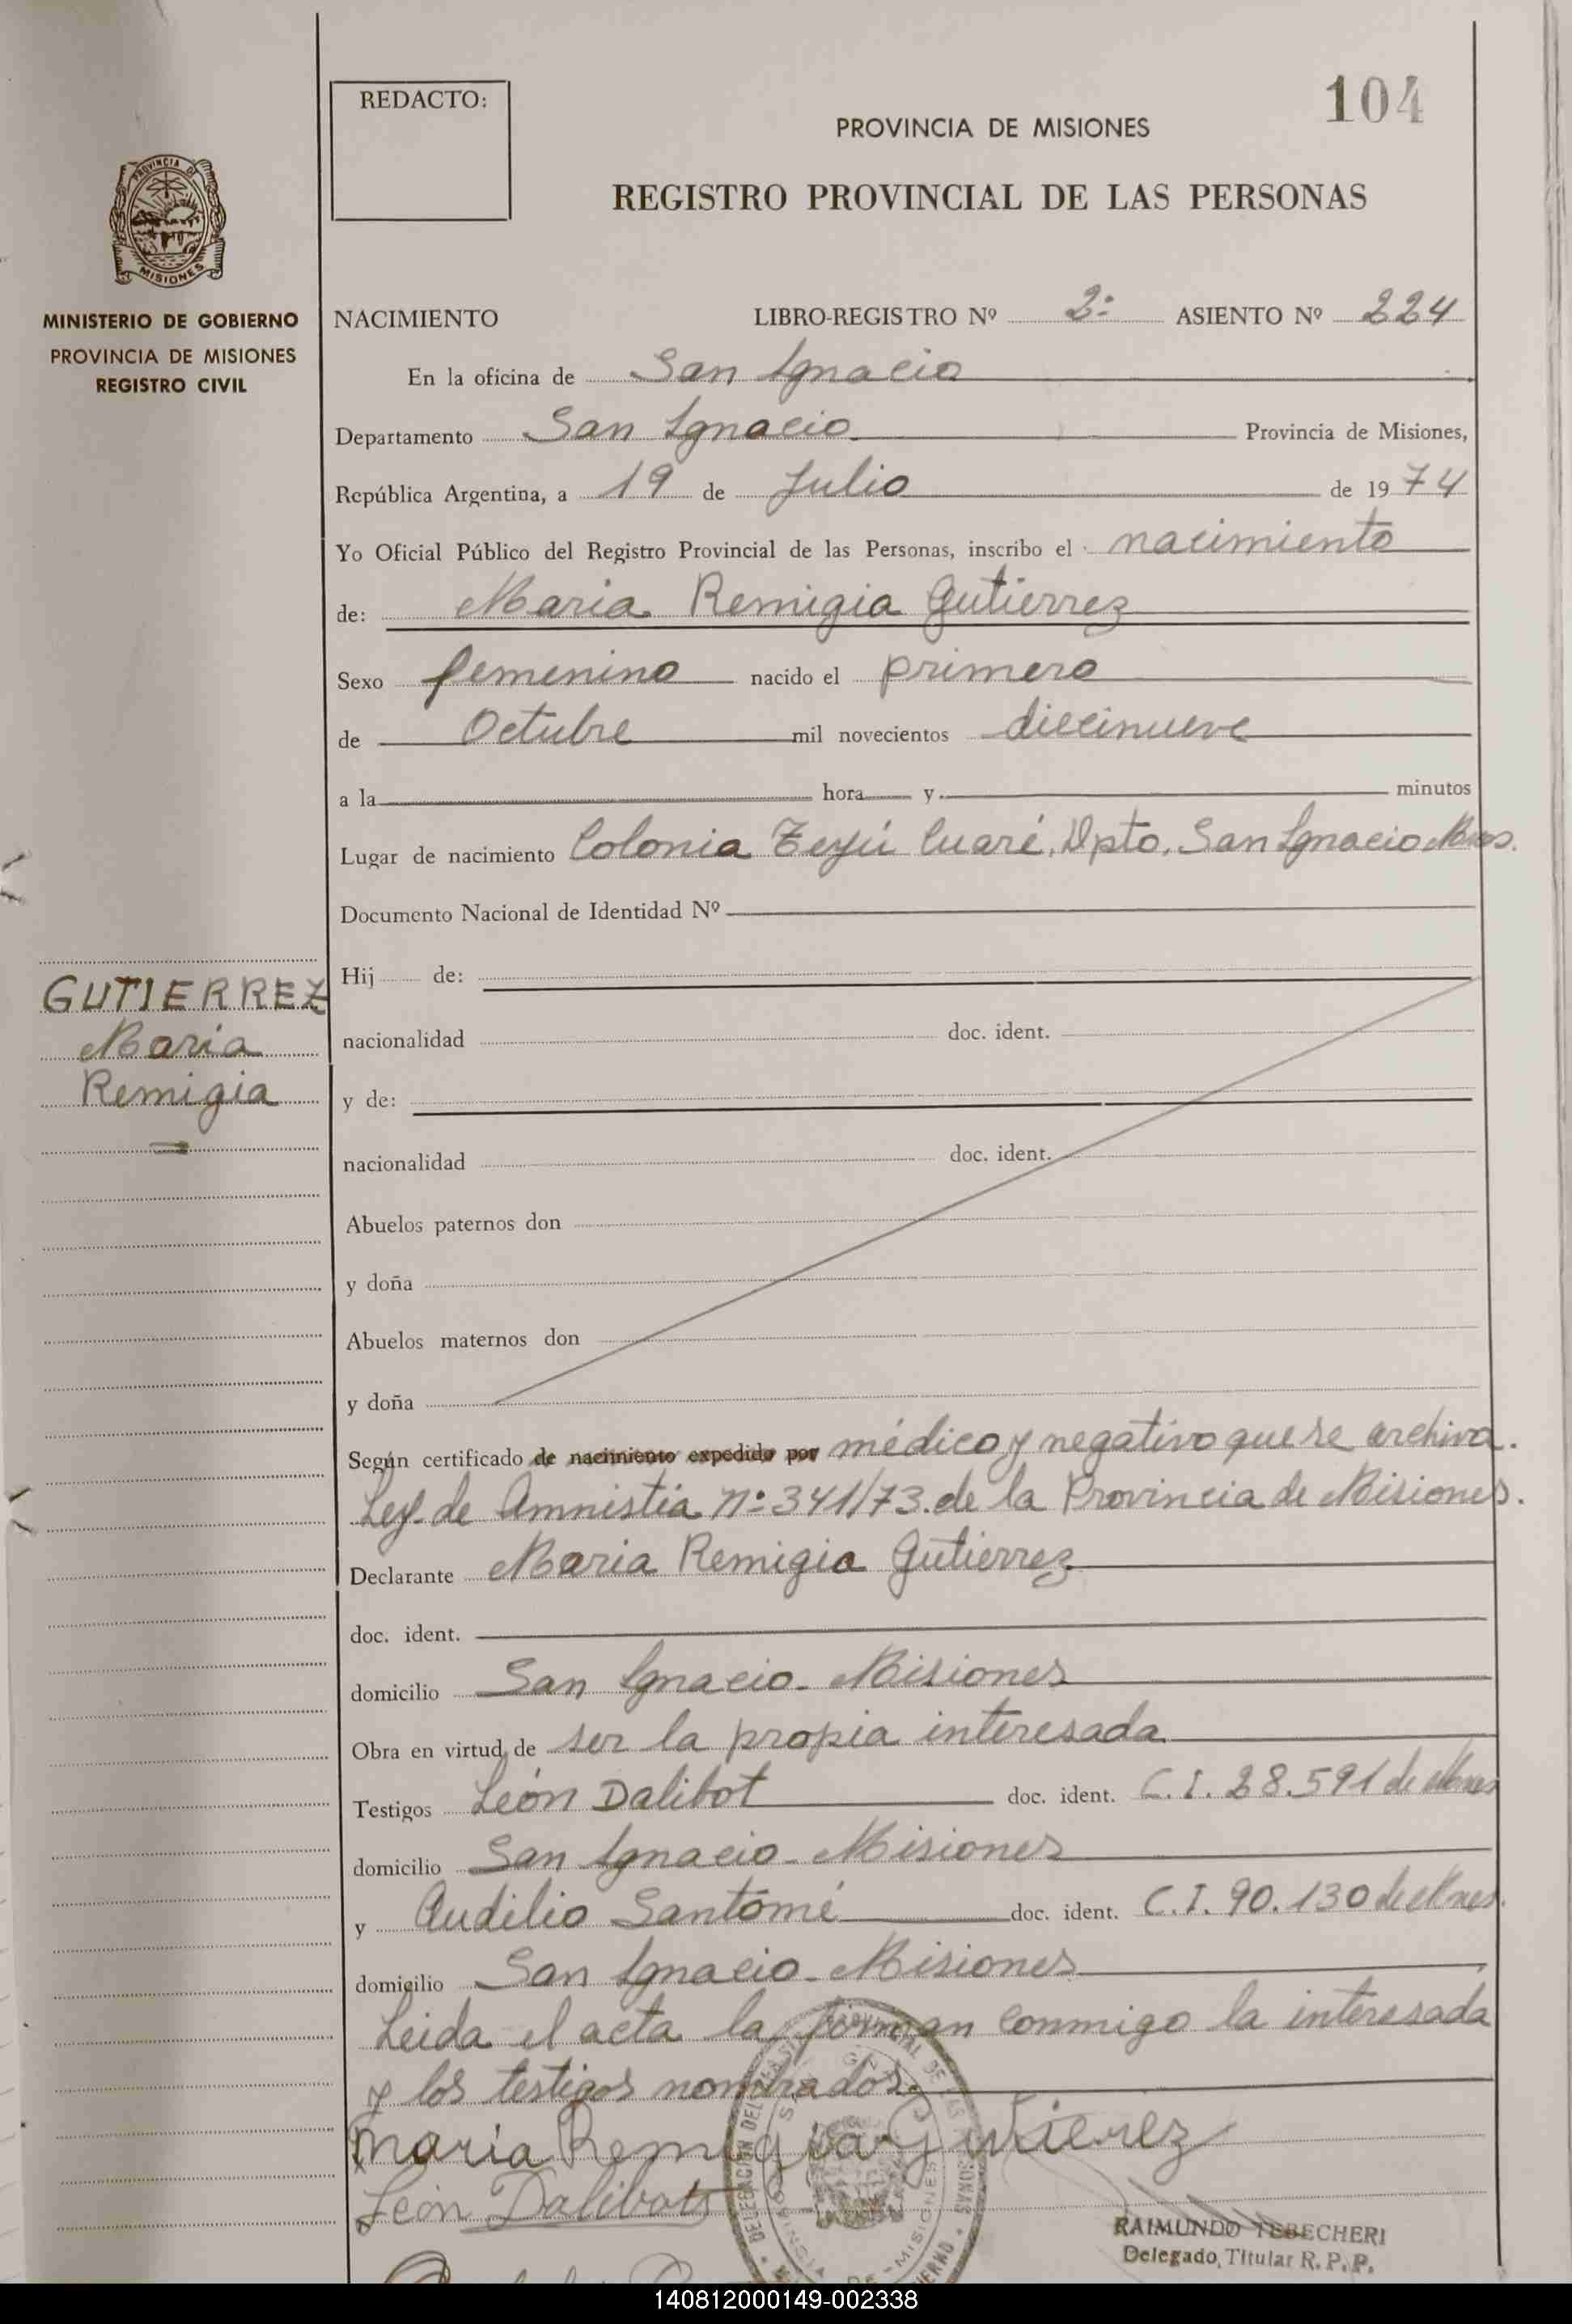 104
REDACTO:
PROVINCIA DE MISIONES
REGISTRO PROVINCIAL DE LAS PERSONAS
PROVINCIA DE
MISIONES
MINISTERIO DE GOBIERNO
PROVINCIA DE MISIONES
REGISTRO CIVIL
NACIMIENTO LIBRO-REGISTRO Nº 2º ASIENTO Nº 224
En la oficina de San Ignacio
Departamento San Ignacio Provincia de Misiones,
República Argentina, a 19 de Julio de 1974
Yo Oficial Público del Registro Provincial de las Personas, inscribo el nacimiento
de: Maria Remigia Gutierrez
Sexo femenino nacido el primero
de Octubre mil novecientos diecinueve
a la hora y minutos
Lugar de nacimiento Colonia Teyú Cuaré, Dpto. San Ignacio Mnes.
Documento Nacional de Identidad Nº
GUTIERREZ
Maria
Remigia
Hij de:
nacionalidad doc. ident.
y de:
nacionalidad doc. ident.
Abuelos paternos don
y doña
Abuelos maternos don
y doña
Según certificado de nacimiento expedido por médico y negativo que se archiva.
Ley de Amnistia nº 341/73 de la Provincia de Misiones.
Declarante Maria Remigia Gutierrez
doc. ident.
domicilio San Ignacio - Misiones
Obra en virtud de ser la propia interesada
Testigos León Dalibot doc. ident. C.I. 28.591 de Mnes
domicilio San Ignacio - Misiones
y Audilio Santomé doc. ident. C.I. 90.130 de Mnes.
domicilio San Ignacio - Misiones
Leida el acta la firman conmigo la interesada
y los testigos nombrados.
Maria Remigia Gutierrez
León Dalibot
RAIMUNDO TEBECHERI
Delegado Titular R. P. P.
140812000149-002338